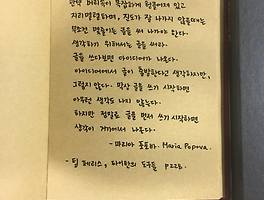 만약 머릿속이 복잡하게 헝클어져 있고
지리멸렬하며, 진도가 잘 나가지 않을때는
무조건 몇줄이는 글을 써 나가야 한다.
생각하기 위해서는 글을 써라.
글을 쓰다보면 아이디어가 나온다.
아이디어에서 글이 출발한다고 생각하지만,
그렇지 않다. 막상 글을 쓰기 시작하면
아무런 생각도 나지 않는다.
하지만 정말로 글을 먼저 쓰기 시작하면
생각이 거기에서 나온다.
- 마리아 포포바. Maria Popova.
- 팀 페리스, 타이탄의 도구들 p228.